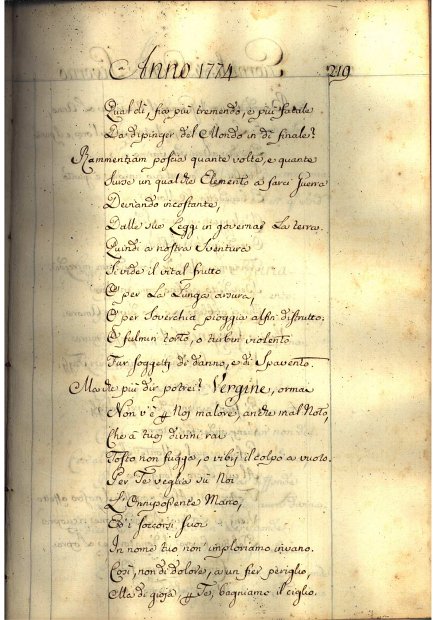 Anno 1774 219
Qual dì, fia più tremendo, e più fatale
Da dipinger del Mondo in dì finale?
Rammentiam poscia quante volte, e quante
Surse un qualche Elemento a farci Guerra
Deviando incostante,
Dalle sue Leggi in governar La terra.
Quindi a nostra Sventura
Si vide il vital frutto
E per La Lunga arsura,
E per Soverchia pioggia alfin distrutto;
E fulmin torto, o turbin violento
Fur soggetti di danno, e di Spavento.
Ma che più dir potrei? Vergine, ormai
Non v'è p Noi malore, anche mal Noto,
Che a tuoj divini rai
Tosto non fugga, o vibrj il colpo a vuoto.
Per Te veglia sù Noi
L'Onnipossente Mano,
Ed i soccorsi suoi
In nome tuo non imploriamo invano.
Così, non di dolore, a un fier periglio,
Ma di gioja p Te, bagniamo il ciglio.